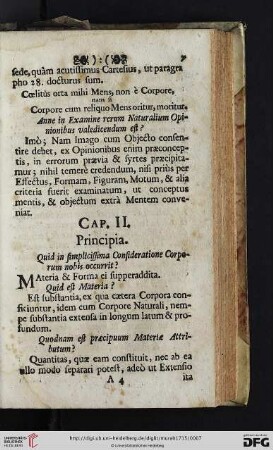 sede, quàm acutissimus Cartesius, ut paragra
pho 28. docturus sum.
Cœlitùs orta mihi Mens, non è Corpore,
nata &
Corpore cum reliquo Mens oritur, moritur.
Anne in Examine rerum Naturalium Opi-
nionibus valedicendum est?
Imò; Nam Imago cum Objecto consen-
tire debet, ex Opinionibus enim præconcep-
tis, in errorum prævia & syrtes præcipita-
mur; nihil temerè credendum, nisi priùs per
Effectus, Formam, Figuram, Motum, & alia
criteria fuerit examinatum, ut conceptus
mentis, & objectum extrà Mentem conve-
niat.
CAP. II.
Principia.
Quid in simplicissima Consideratione Corpo-
rum nobis occurrit?
Materia & Forma ei supperaddita.
Quid est Materia?
Est substantia, ex qua cætera Corpora con-
ficiuntur, idem cum Corpore Naturali, nem-
pe substantia extensa in longum latum & pro-
fundum.
Quodnam est præcipuum Materiæ Attri-
butum?
Quantitas, quæ eam constituit, nec ab ea
ullo modo separari potest, adeò ut Extensio
A 4 ita
UNIVERSITÄTS-
BIBLIOTHEK
HEIDELBERG
© Universitätsbibliothek Heidelberg
gefördert durch die
DFG